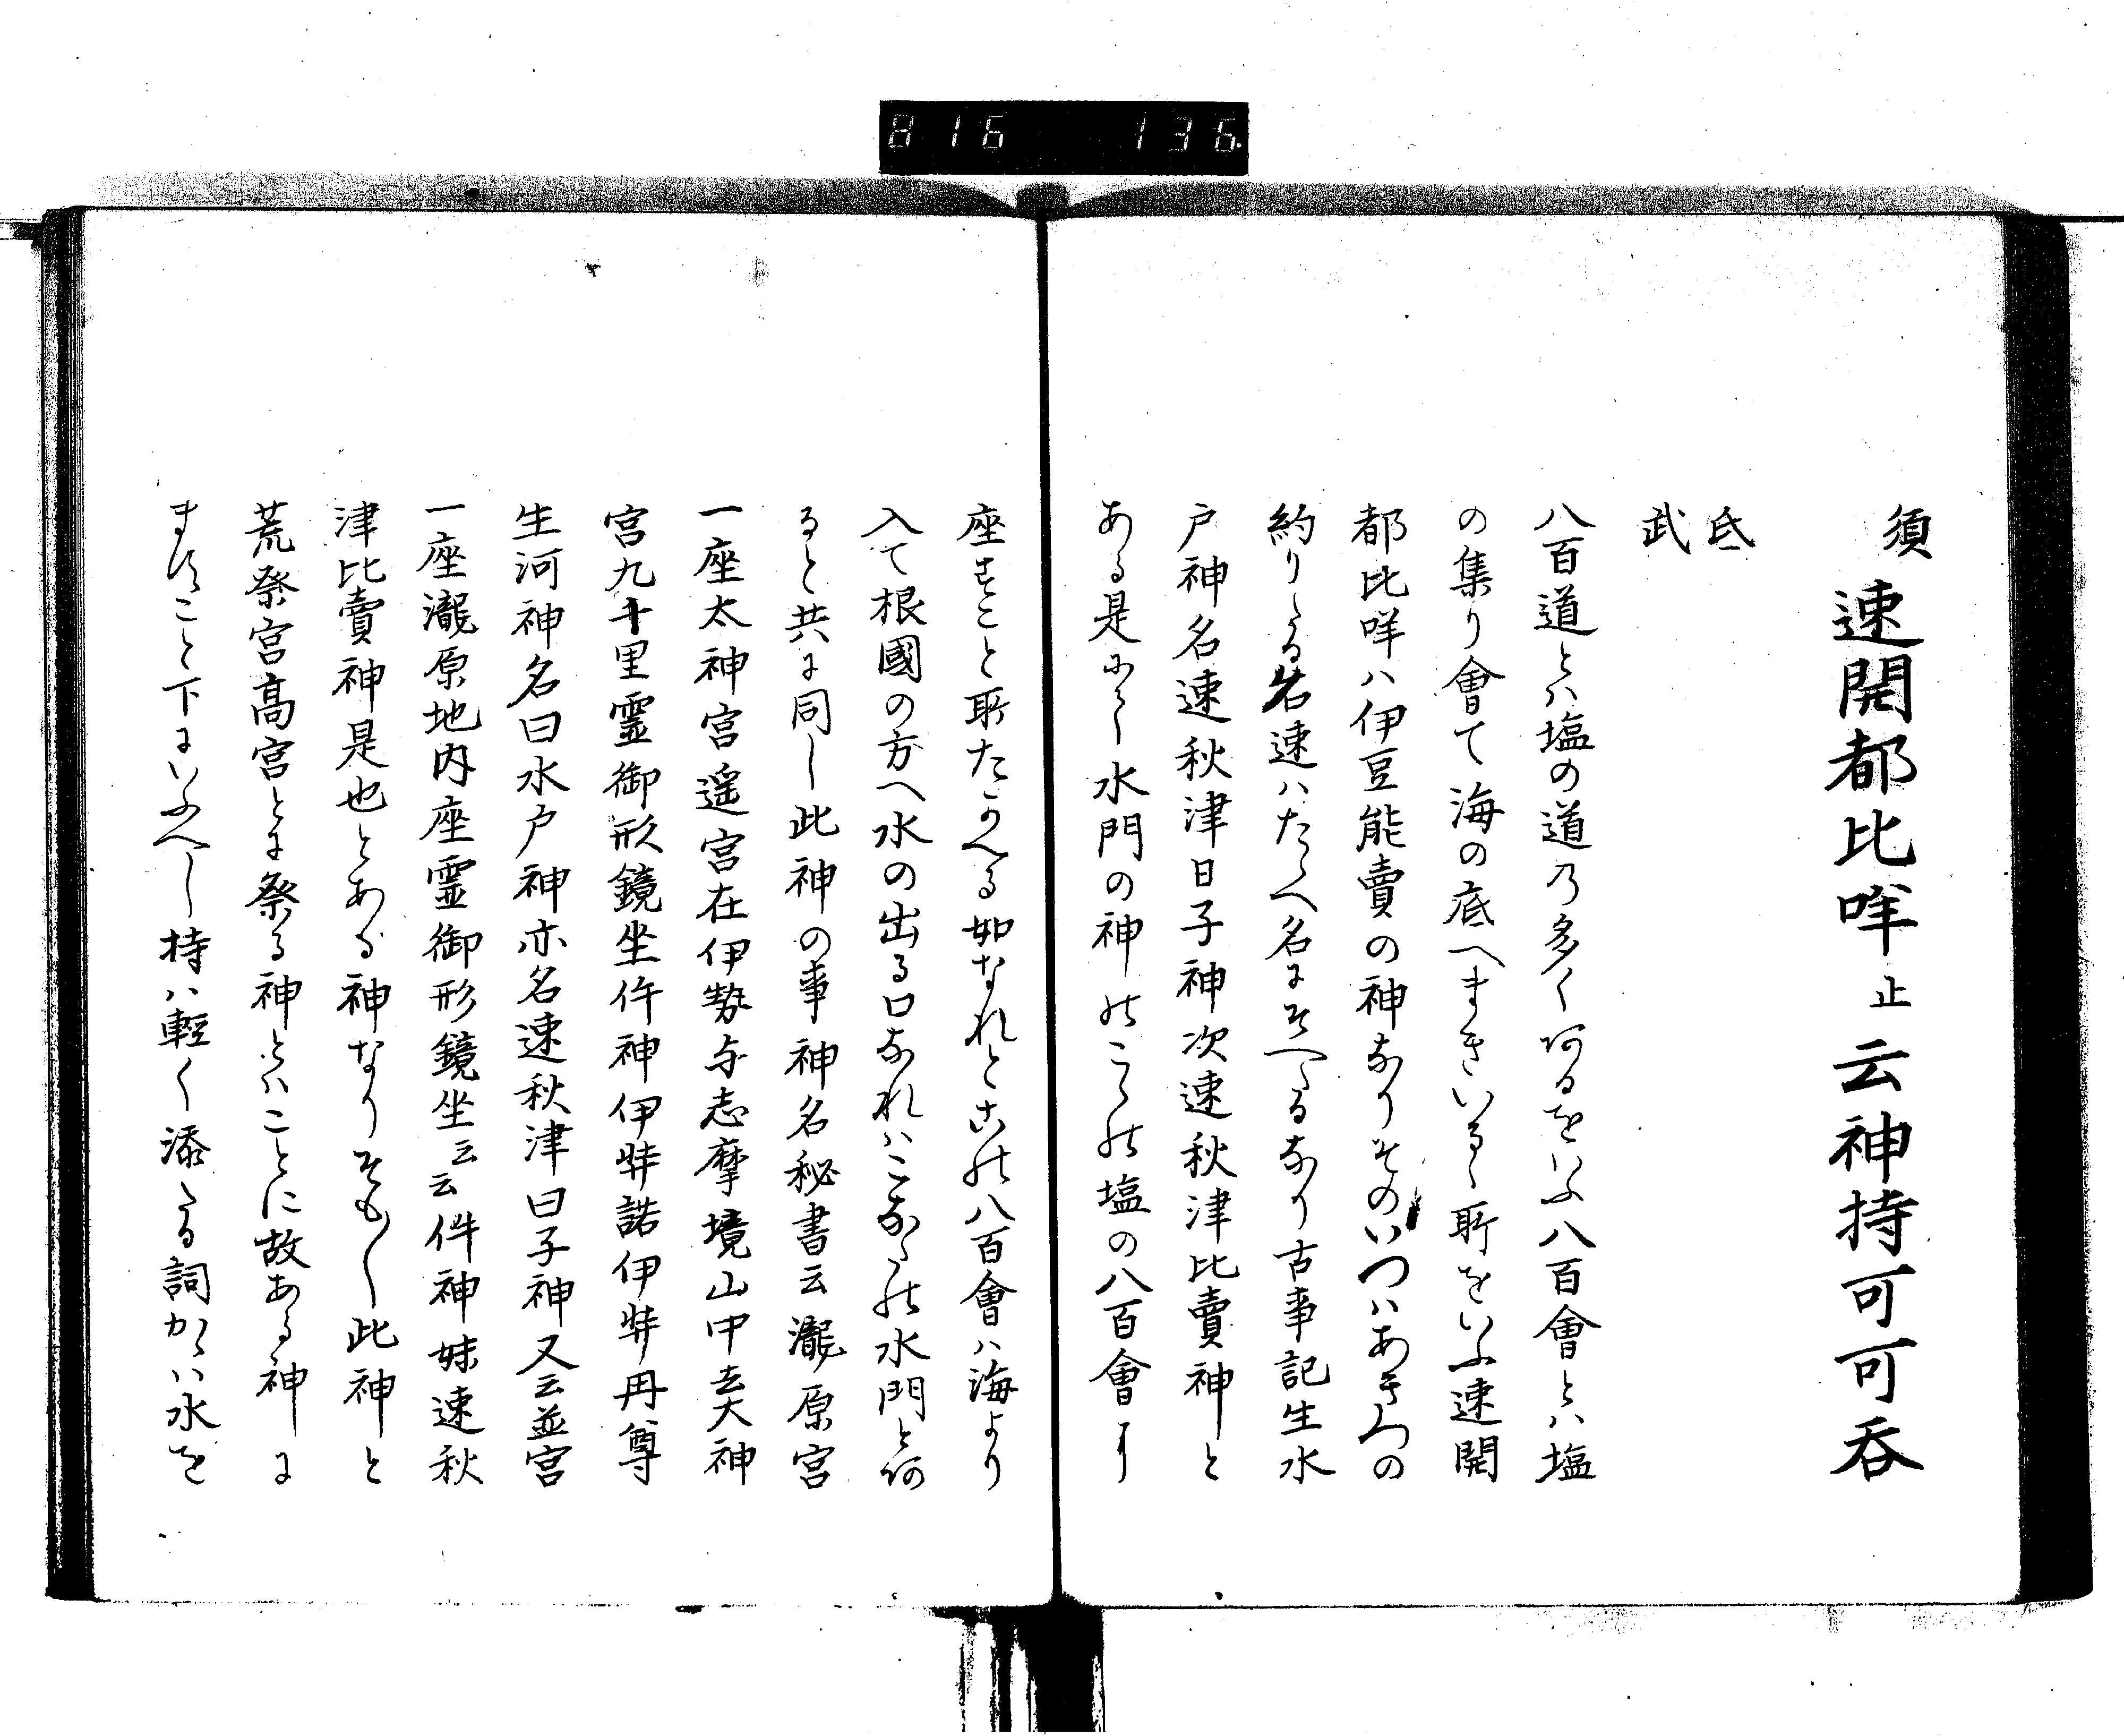 816 136
須速開都比咩止云神持可可呑
氐
武
八百道とハ塩の道乃多く何るをいふ八百會とハ塩
の集り會て海の底へまきいるゝ所をいふ速開
都比咩ハ伊豆能賣の神なりそのいつハあきつの
約りたる名速ハたゝへ名にそへたるなり古事記生水
戸神名速秋津日子神次速秋津比賣神と
ある是にて水門の神のこゝの塩の八百會に
座すこと所たかへる如なれとこの八百會ハ海より
入て根國の方へ水の出る口なれハこなたの水門と何
ると共に同し此神の事神名秘書云瀧原宮
一座太神宮遥宮在伊勢与志摩境山中去大神
宮九十里霊御形鏡坐件神伊弉諾伊弉冉尊
生河神名曰水戸神亦名速秋津日子神又云並宮
一座瀧原地内座霊御形鏡坐云云件神妹速秋
津比賣神是也とある神なりそも〳〵此神と
荒祭宮高宮とに祭る神とハことに故ある神に
ますこと下にいふへし持ハ軽く添たる詞かゝハ水を